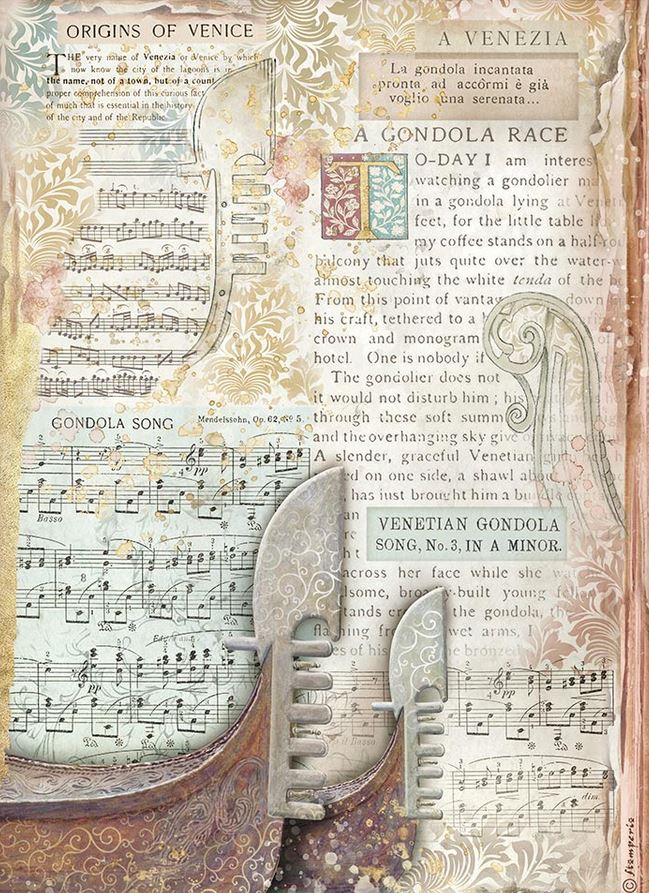 ORIGINS OF VENICE
THE very name of Venezia or Venice by which
now know the city of the lagoons is in
the name, not of a town, but of a count
proper comprehension of this curious fact
of much that is essential in the history
of the city and of the Republic.
A VENEZIA
La gondola incantata
pronta ad accôrmi è già
voglio una serenata...
A GONDOLA RACE
TO-DAY I am interes
watching a gondolier
in a gondola lying at
feet, for the little table
my coffee stands on a
balcony that juts quite over the
almost touching the white tenda of the
From this point of down
his craft, tethered to a
crown and monogram
hotel. One is nobody if
The gondolier does not
it would not disturb him ; his
through these soft
and the overhanging sky give
A slender, graceful
on one side, a shawl
has just brought him a
GONDOLA SONG
Mendelssohn, Op. 62, No 5.
pp
Basso
pp
VENETIAN GONDOLA
SONG, No. 3, IN A MINOR.
across her face while she
young
the gondola, the
wet arms, I
of his
pp
Basso
dim.
© Stamperia